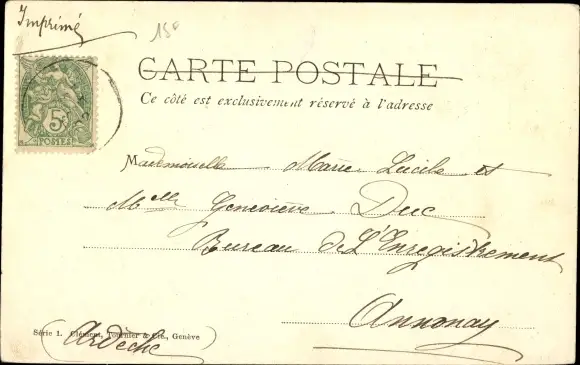 Imprimé
15c
CARTE POSTALE
Ce côté est exclusivement réservé à l'adresse
5c
POSTES
Mademoiselle Marie Lucile et
Melle Geneviève Duc
Bureau de L'Enregistrement
Annonay
Série 1. Clément, Tournier & Cie., Genève
(Ardèche)